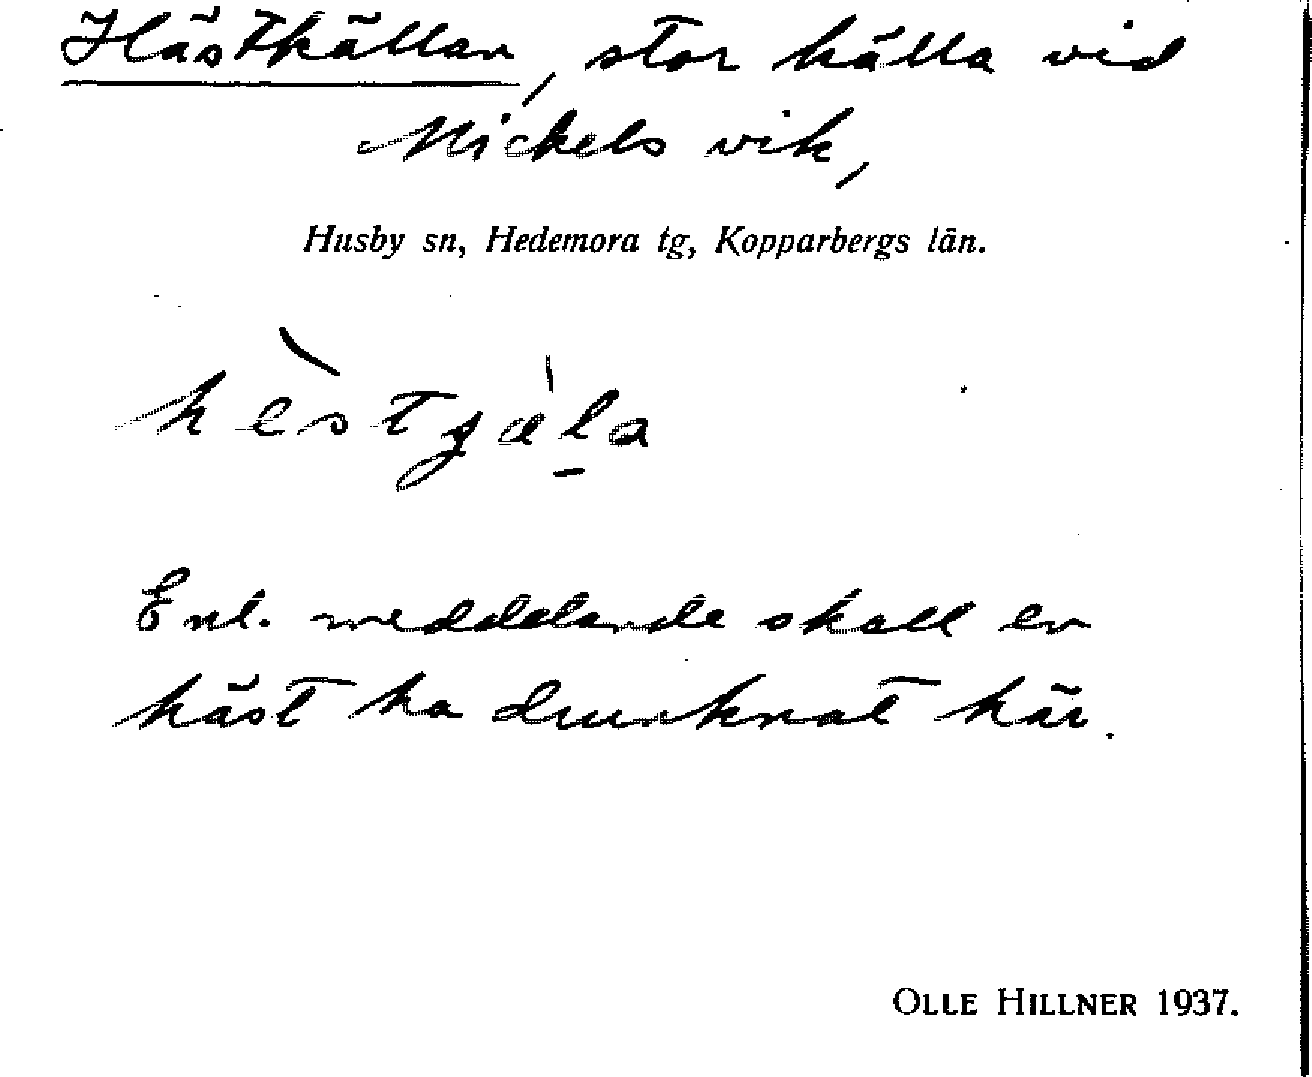 Hästkällan, stor källa vid
Nickels vik,
Husby sn, Hedemora tg, Kopparbergs län.
hèstjæ̀l̠a
Enl. meddelande skall en
häst ha drunknat här.
OLLE HILLNER 1937.